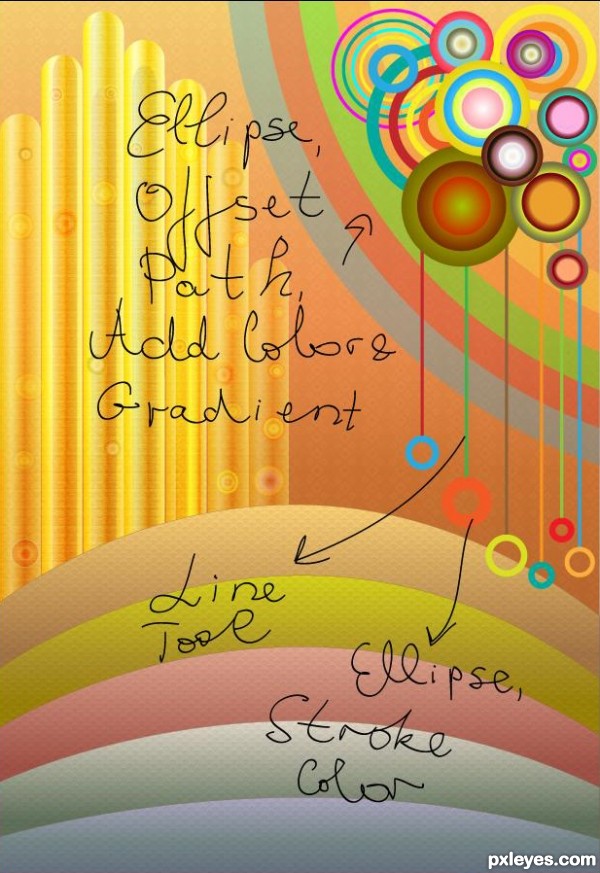 Ellipse,
Offset
Path,
Add Color &
Gradient
Line
Tool
Ellipse,
Stroke
Color
pxleyes.com